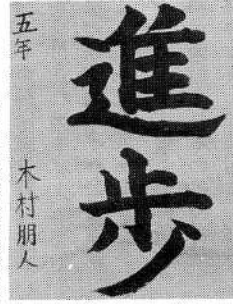 進歩
五年 木村朋人